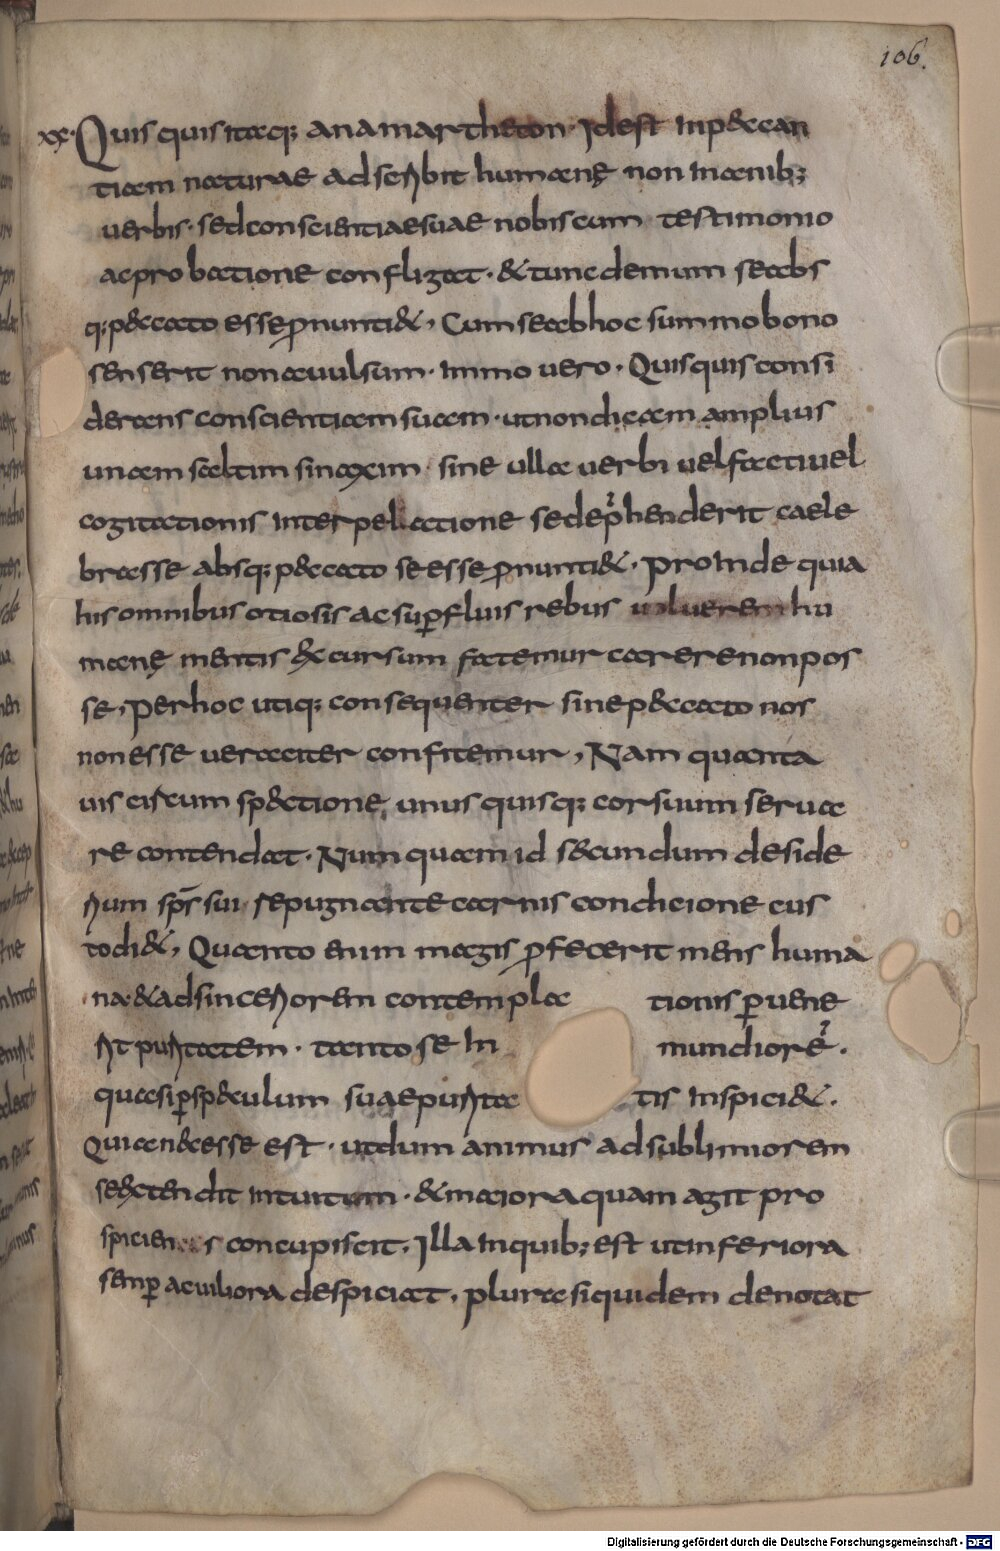 106.
xx· Quisquis itaq; anamartheton· Idest inpeccan
tiam naturae adscribit humanę non inanib;
uerbis· sed conscientiae suae nobiscum testimonio
ac probatione confligat· & tunc demum se abs
q; peccato esse pronuntiet, Cum se ab hoc summo bono
senserit non auulsum· immo uero· Quisquis consi
derans conscientiam suam· ut non dicam amplius
unam saltim sinaxim· sine ulla uerbi uel facti uel
cogitationis interpellatione se deprehenderit caele
brasse absq; peccato se esse pronuntiet. Proinde quia
his omnibus otiosis ac superfluis rebus uoluerem hu
manę mentis excursum fatemur carere non pos
se, Per hoc utiq; consequenter sine peccato nos
non esse ueraciter confitemur, Nam quanta
uis circumspectione, unusquisq; cor suum serua
re contendat· Numquam id secundum deside
rium sps̄ sui repugnante carnis condicione cus
todiet, Quanto enim magis profecerit mens huma
na· & ad sinceriorem contempla tionis peruene
rit puritatem· tanto se in mundiorē·
quasi per speculum suae purita tis inspiciet·
Quia necesse est· ut dum animus ad sublimiorem
se extendit intuitum· & maiora quam agit pro
spiciens concupiscit. Illa in quib; est ut inferiora
semper ac uiliora despiciat, plura siquidem denotat
Digitalisierung gefördert durch die Deutsche Forschungsgemeinschaft - DFG